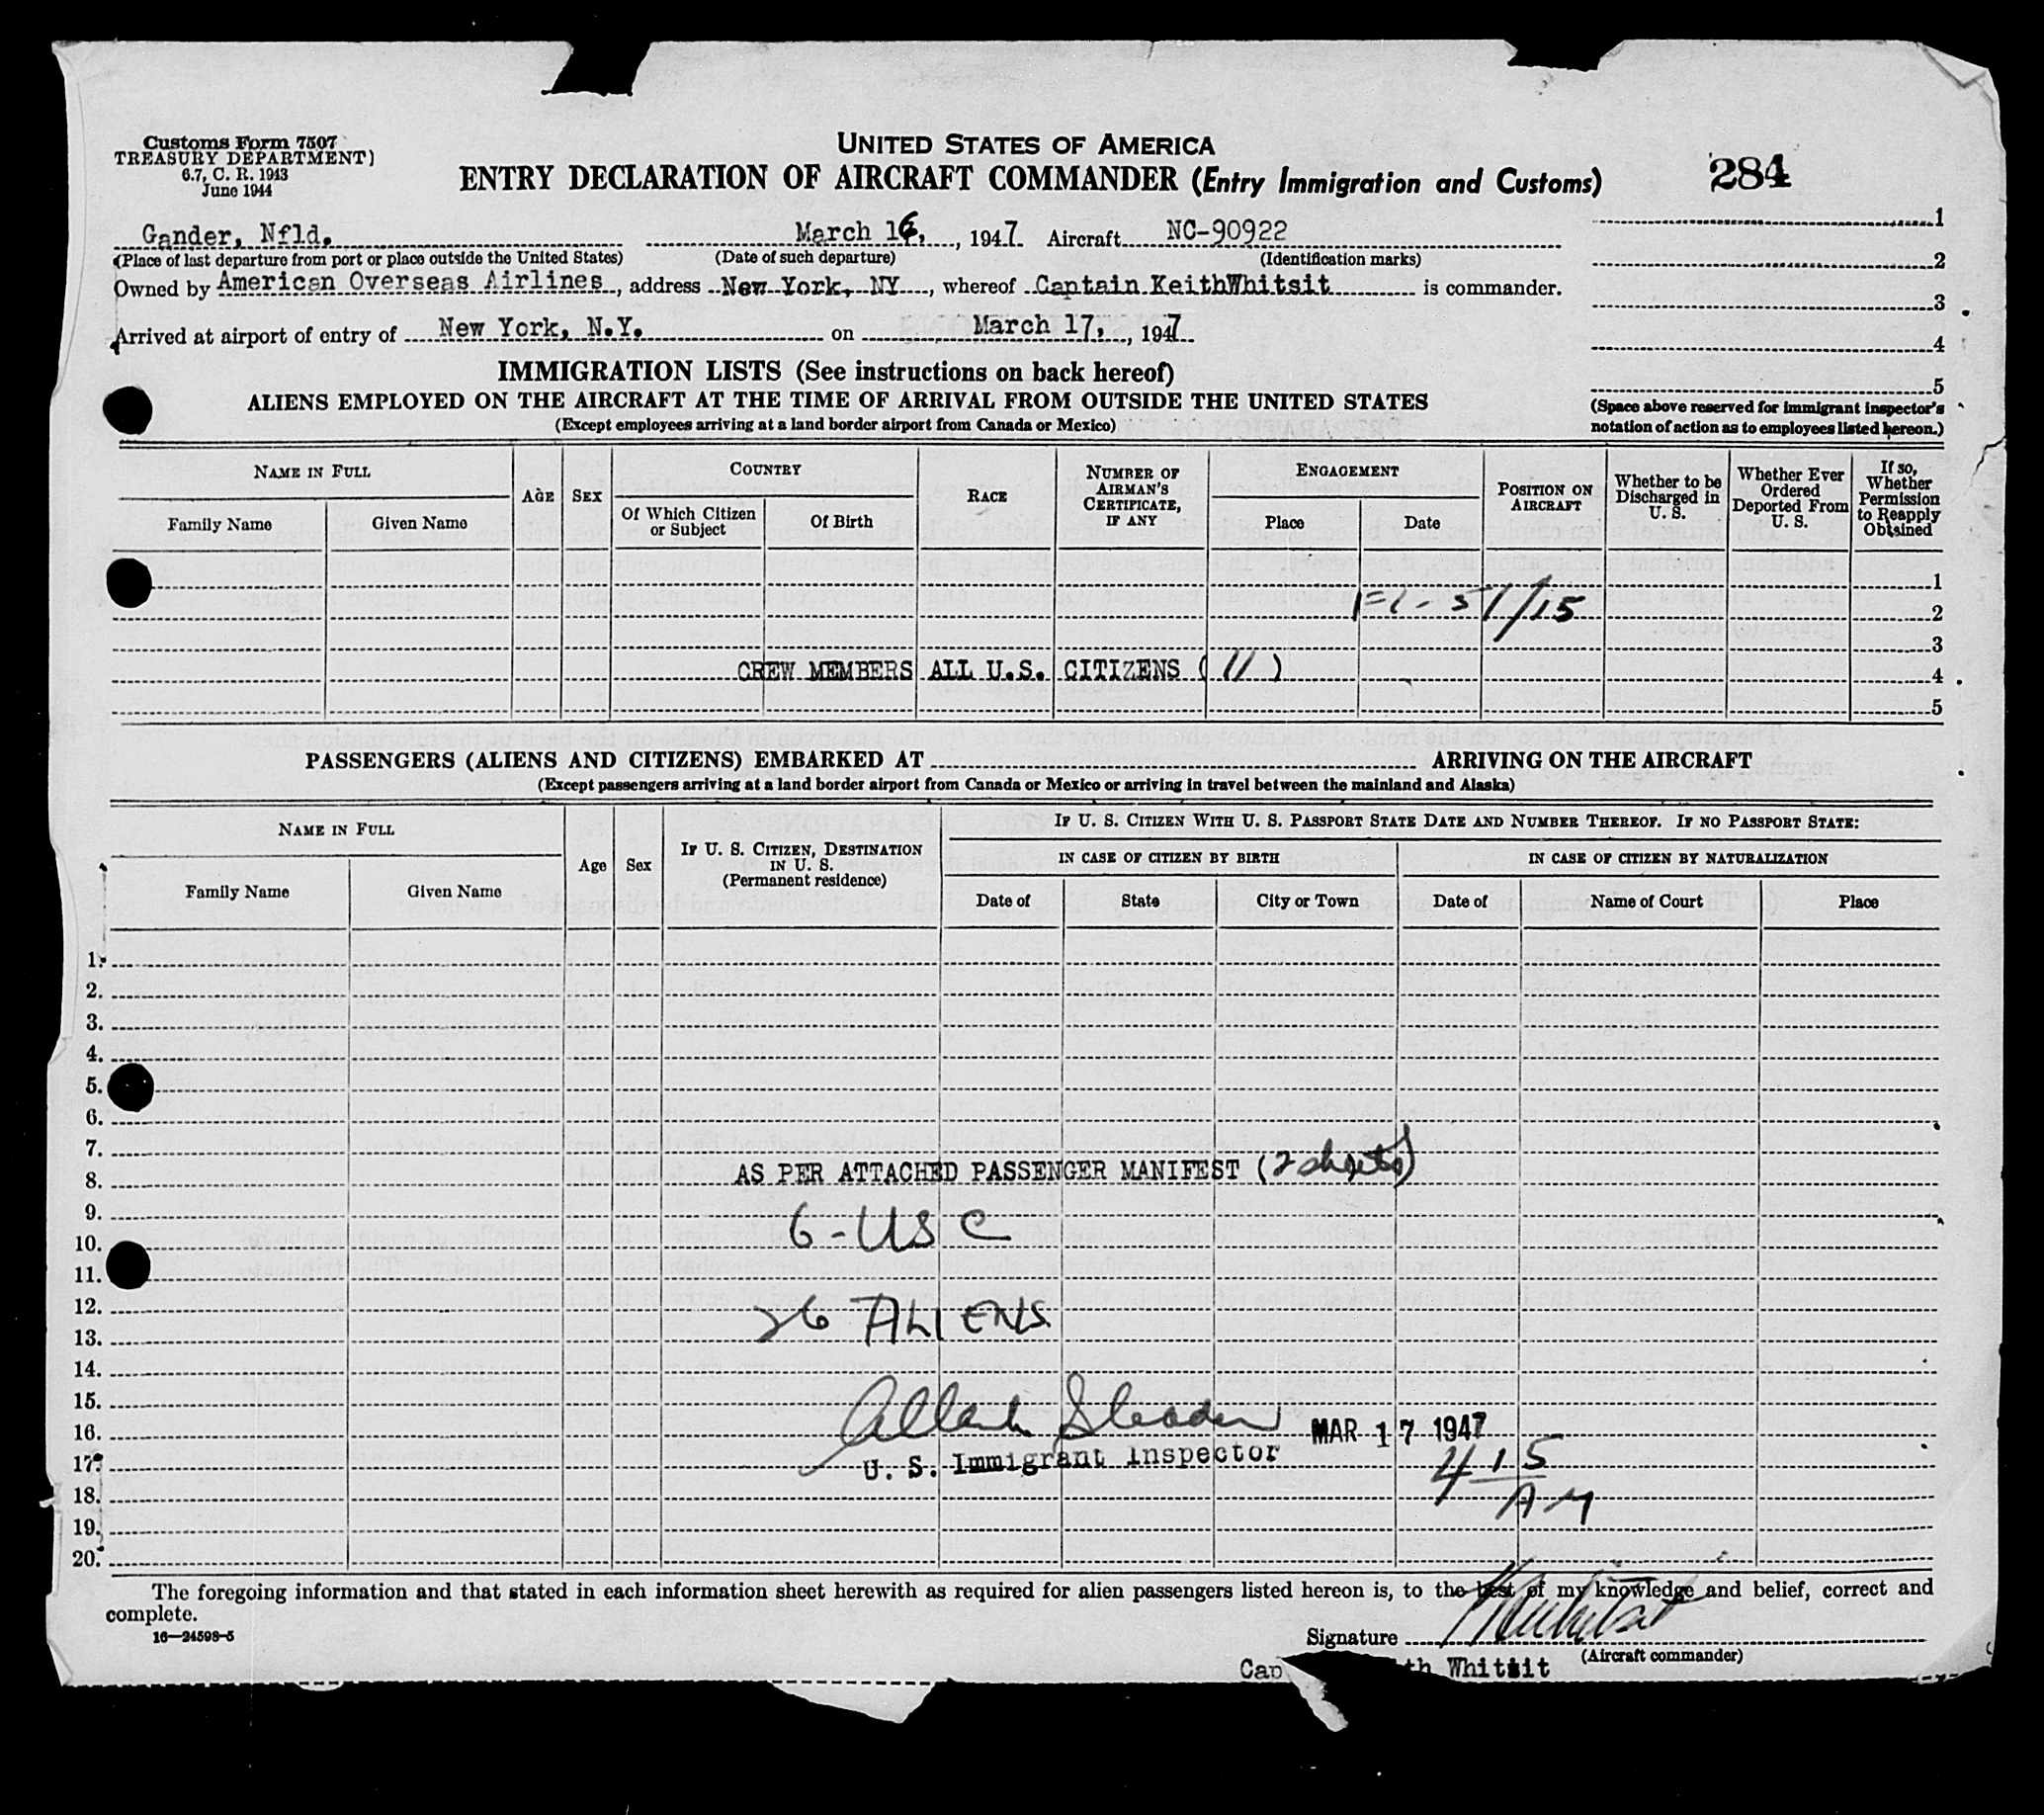 Customs Form 7507
TREASURY DEPARTMENT)
6.7, C. R. 1943
June 1944
UNITED STATES OF AMERICA
ENTRY DECLARATION OF AIRCRAFT COMMANDER (Entry Immigration and Customs)
284
Gander, Nfld. March 16, 1947 Aircraft NC-90922
(Place of last departure from port or place outside the United States) (Date of such departure) (Identification marks)
Owned by American Overseas Airlines, address New York, NY, whereof Captain KeithWhitsit is commander.
Arrived at airport of entry of New York, N.Y. on March 17, 1947
1
2
3
4
5
(Space above reserved for immigrant inspector's
notation of action as to employees listed hereon.)
IMMIGRATION LISTS (See instructions on back hereof)
ALIENS EMPLOYED ON THE AIRCRAFT AT THE TIME OF ARRIVAL FROM OUTSIDE THE UNITED STATES
(Except employees arriving at a land border airport from Canada or Mexico)
NAME IN FULL
Family Name
Given Name
AGE
SEX
COUNTRY
Of Which Citizen
or Subject
Of Birth
RACE
NUMBER OF
AIRMAN'S
CERTIFICATE,
IF ANY
ENGAGEMENT
Place
Date
POSITION ON
AIRCRAFT
Whether to be
Discharged in
U. S.
Whether Ever
Ordered
Deported From
U. S.
If so,
Whether
Permission
to Reapply
Obtained
1
2
3
CREW MEMBERS ALL U.S. CITIZENS ( 11 ) 4
5
PASSENGERS (ALIENS AND CITIZENS) EMBARKED AT ARRIVING ON THE AIRCRAFT
(Except passengers arriving at a land border airport from Canada or Mexico or arriving in travel between the mainland and Alaska)
NAME IN FULL
Family Name
Given Name
Age
Sex
IF U. S. CITIZEN, DESTINATION
IN U. S.
(Permanent residence)
IF U. S. CITIZEN WITH U. S. PASSPORT STATE DATE AND NUMBER THEREOF. IF NO PASSPORT STATE:
IN CASE OF CITIZEN BY BIRTH
IN CASE OF CITIZEN BY NATURALIZATION
Date of
State
City or Town
Date of
Name of Court
Place
1.
2.
3.
4.
5.
6.
7.
8. AS PER ATTACHED PASSENGER MANIFEST (2 sheets)
9.
10. 6-USC
11.
12.
13. 26 ALIENS
14.
15.
16. MAR 17 1947
17. U. S. Immigrant Inspector 415
18. AM
19.
20.
The foregoing information and that stated in each information sheet herewith as required for alien passengers listed hereon is, to the best of my knowledge and belief, correct and
complete.
16—24598-5
Signature
(Aircraft commander)
Whitsit